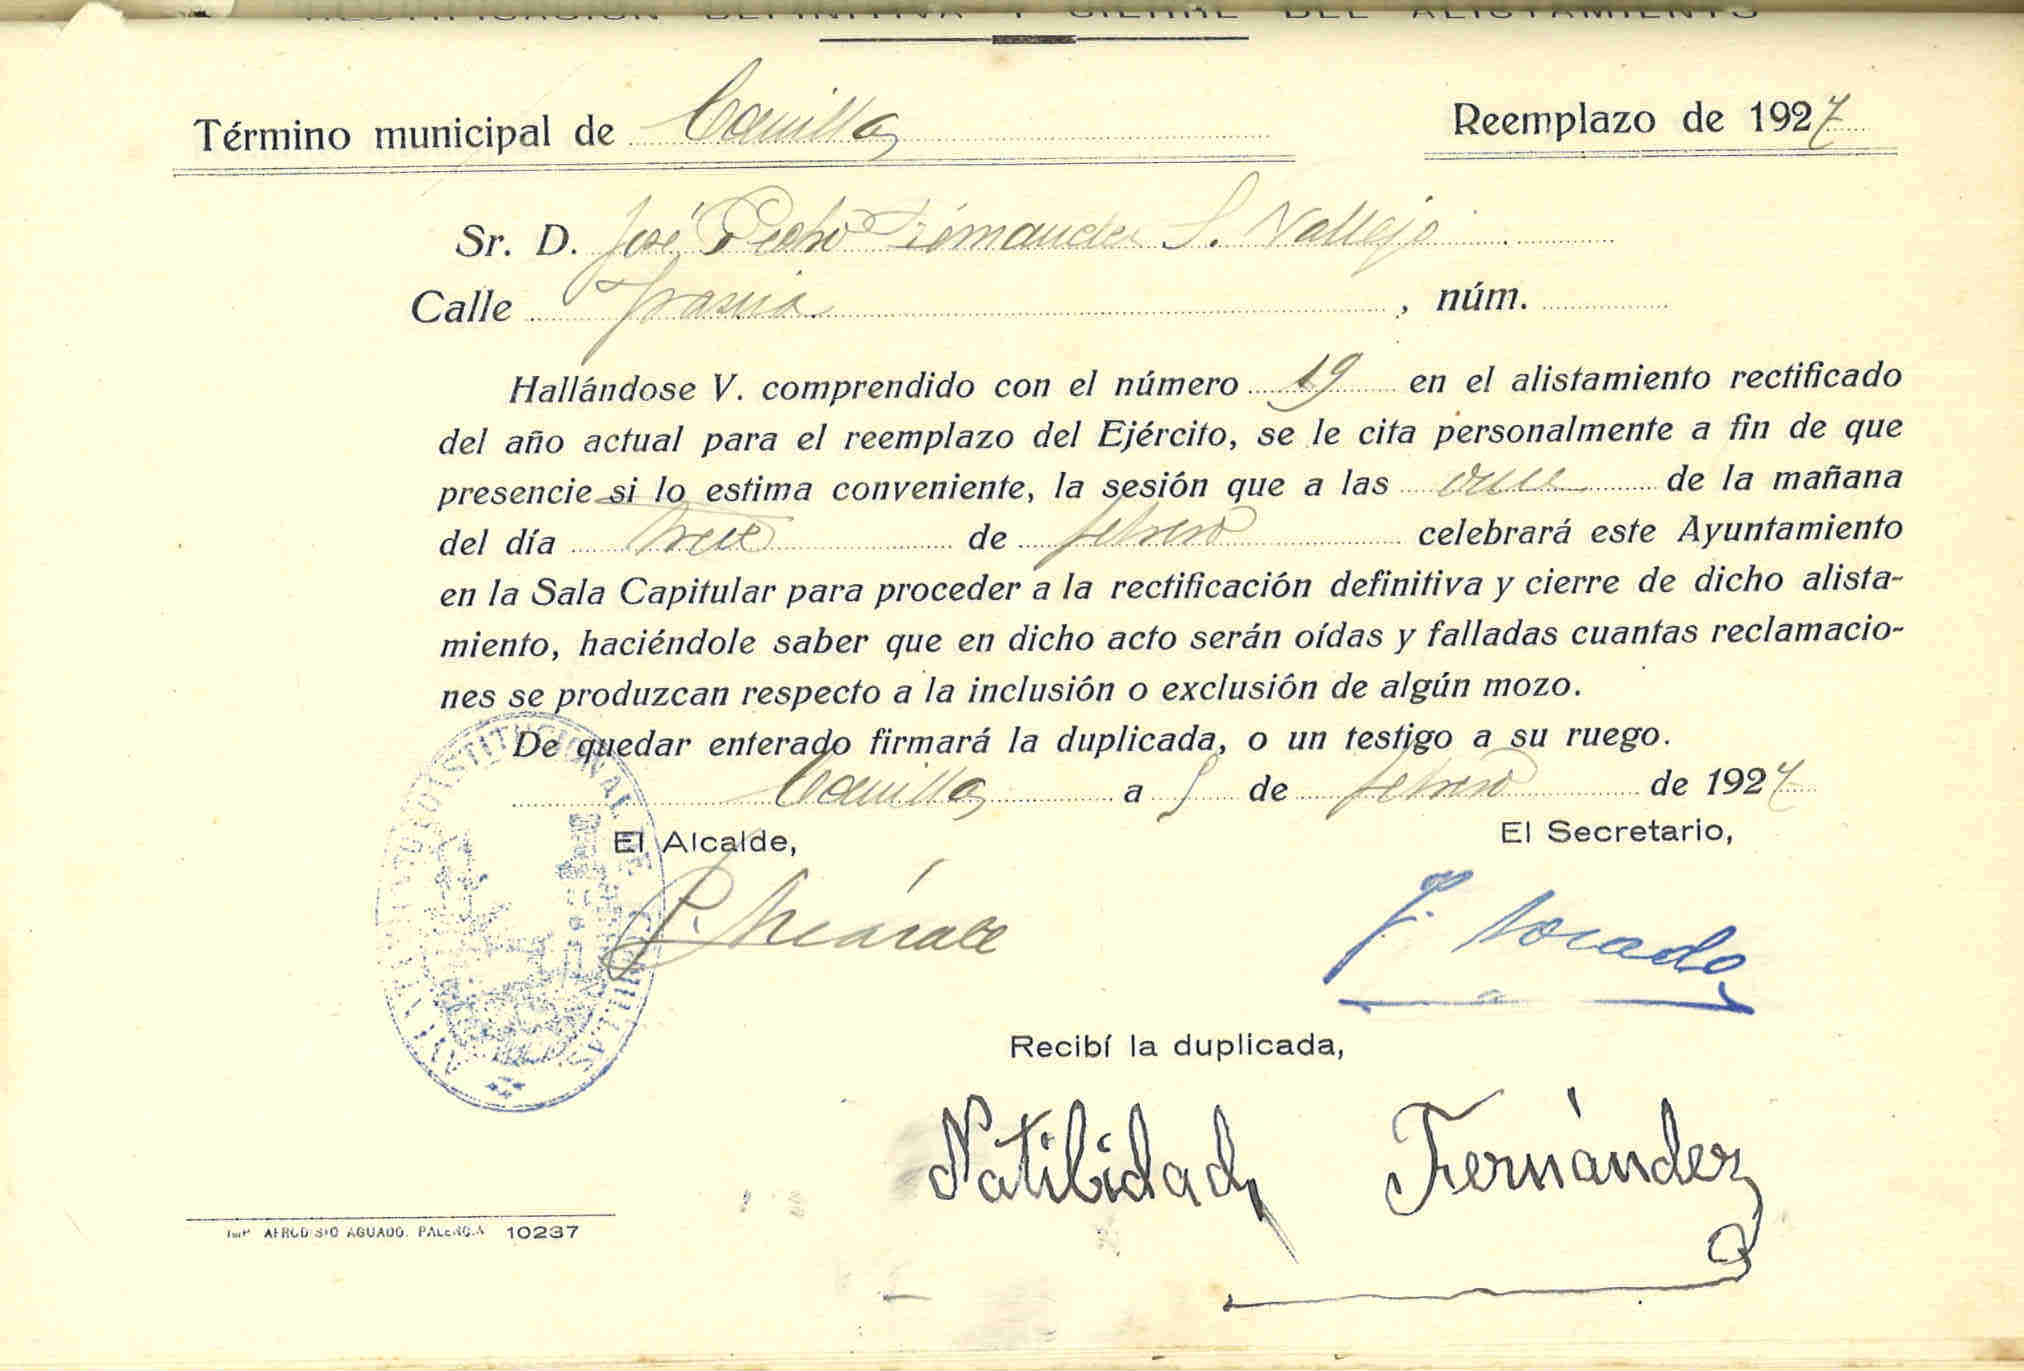 RECTIFICACIÓN DEFINITIVA Y CIERRE DEL ALISTAMIENTO
Término municipal de Canillas Reemplazo de 1927
Sr. D. José Pedro Fernández S. Vallejo
Calle , núm.
Hallándose V. comprendido con el número 19 en el alistamiento rectificado
del año actual para el reemplazo del Ejército, se le cita personalmente a fin de que
presencie si lo estima conveniente, la sesión que a las once de la mañana
del día trece de febrero celebrará este Ayuntamiento
en la Sala Capitular para proceder a la rectificación definitiva y cierre de dicho alista-
miento, haciéndole saber que en dicho acto serán oídas y falladas cuantas reclamacio-
nes se produzcan respecto a la inclusión o exclusión de algún mozo.
De quedar enterado firmará la duplicada, o un testigo a su ruego.
Canillas a de febrero de 1927
El Alcalde, El Secretario,
AYUNTAMIENTO CONSTITUCIONAL DE CANILLAS
Recibí la duplicada,
Natibidad Fernández
IMP. AFRODISIO AGUADO. PALENCIA 10237